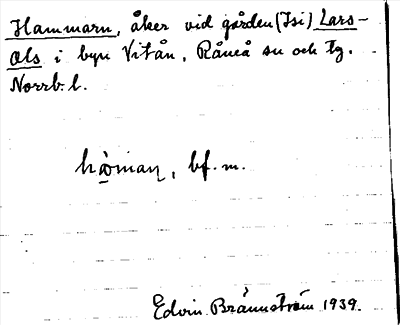 Hammarn, åker vid gården (Isi) Lars-
Ols i byn Vitån, Råneå sn och tg.
Norrb. l.
bf. m.
Edvin Brännström 1939.